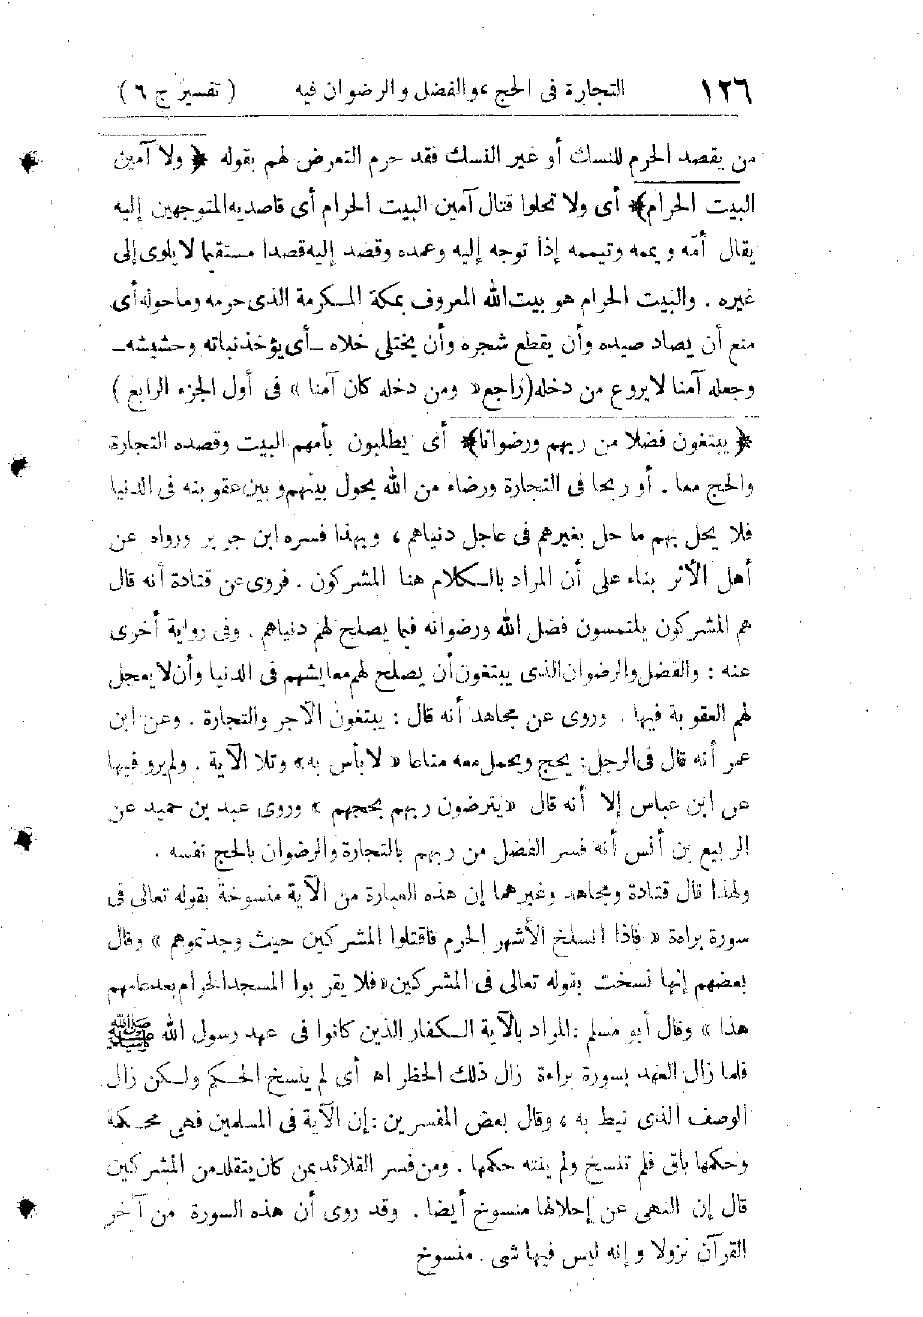 ١٢٦ التجارة فى الحج ، والفضل والرضوان فيه ( تفسير ج ٦ )
من يقصد الحرم للنسك أو غير النسك فقد حرم التعرض لهم بقوله ﴿ ولا آمين
البيت الحرام ﴾ أى ولا تحلوا قتال آمين البيت الحرام أى قاصديه المتوجهين إليه
يقال أمّه ويممه وتيممه إذا توجه إليه وعمده وقصد إليه قصدا مستقيما لا يلوى إلى
غيره . والبيت الحرام هو بيت الله المعروف بمكة المكرمة الذى حرمه وما حوله أى
منع أن يصاد صيده وأن يقطع شجره وأن يختلى خلاه _أى يؤخذ نباته وحشيشه_
وجعله آمنا لا يروع من دخله (راجع « ومن دخله كان آمنا » فى أول الجزء الرابع )
﴿ يبتغون فضلا من ربهم ورضوانا ﴾ أى يطلبون بأمهم البيت وقصده التجارة
والحج معا . أو ربحا فى التجارة ورضاء من الله يحول بينهم وبين عقوبته فى الدنيا
فلا يحل بهم ما حل بغيرهم فى عاجل دنياهم ، وبهذا فسره ابن جرير ورواه عن
أهل الأثر بناء على أن المراد بالكلام هنا المشركون . فروى عن قتادة أنه قال
هم المشركون يلتمسون فضل الله ورضوانه فيما يصلح لهم دنياهم . وفى رواية أخرى
عنه : والفضل والرضوان الذى يبتغون أن يصلح لهم معايشهم فى الدنيا وأن لا يعجل
لهم العقوبة فيها . وروى عن مجاهد أنه قال : يبتغون الأجر والتجارة . وعن ابن
عمر أنه قال فى الرجل : يحج ويحمل معه متاعا « لا بأس به » وتلا الآية . ولم يرو فيها
عن ابن عباس إلا أنه قال « يترضون ربهم بحجهم » وروى عبد بن حميد عن
الربيع بن أنس أنه فسر الفضل من ربهم بالتجارة والرضوان بالحج نفسه .
ولهذا قال قتادة ومجاهد وغيرهما إن هذه العبارة من الآية منسوخة بقوله تعالى فى
سورة براءة « فاذا انسلخ الأشهر الحرم فاقتلوا المشركين حيث وجدتموهم » وقال
بعضهم إنها نسخت بقوله تعالى فى المشركين « فلا يقربوا المسجد الحرام بعد عامهم
هذا » وقال أبو مسلم : المراد بالآية الكفار الذين كانوا فى عهد رسول الله ﷺ
فلما زال العهد بسورة براءة زال ذلك الحظر اه أى لم ينسخ الحكم ولكن زال
الوصف الذى نيط به ، وقال بعض المفسرين : إن الآية فى المسلمين فهى محكمة
وحكمها باق فلم تنسخ ولم ينته حكمها . ومن فسر القلائد بمن كان يتقلد من المشركين
قال إن النهى عن إحلالها منسوخ أيضا . وقد روى أن هذه السورة من آخر
القرآن نزولا وإنه ليس فيها شىء منسوخ